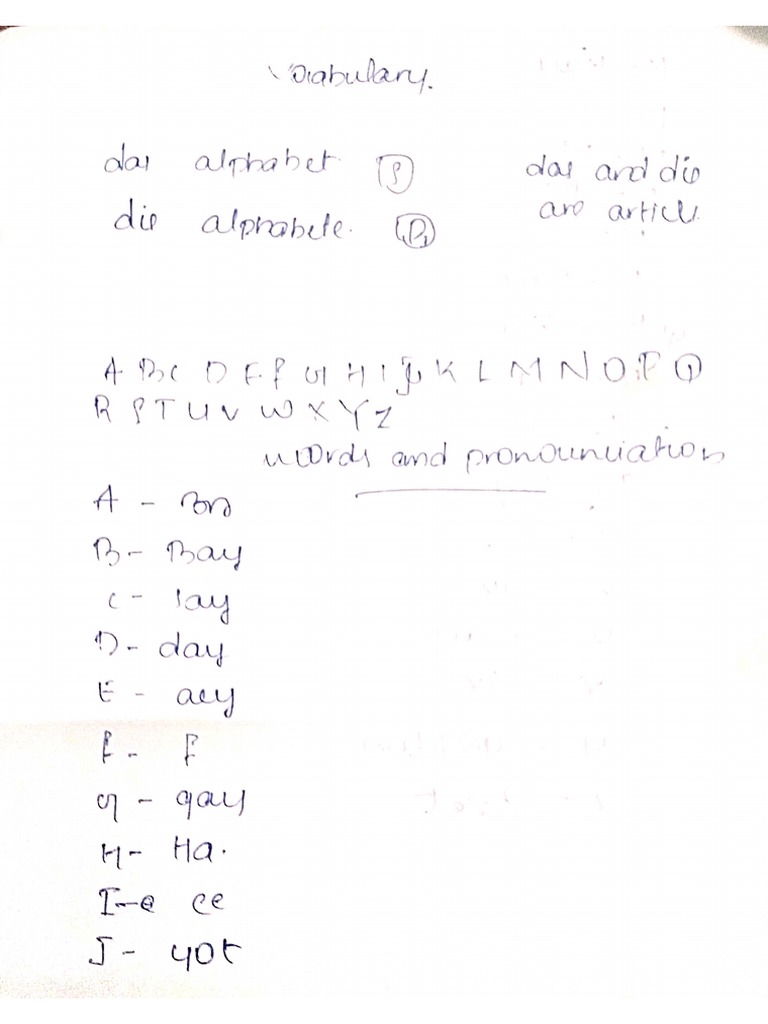 Vocabulary.
das alphabet (S)
das and die
die alphabete. (P)
are article
A B C D E F G H I J K L M N O P Q
R S T U V W X Y Z
words and pronounciation
A -
B - Bay
C - say
D - day
E - aey
F - F
G - gay
H - Ha.
I - ee
J - yot